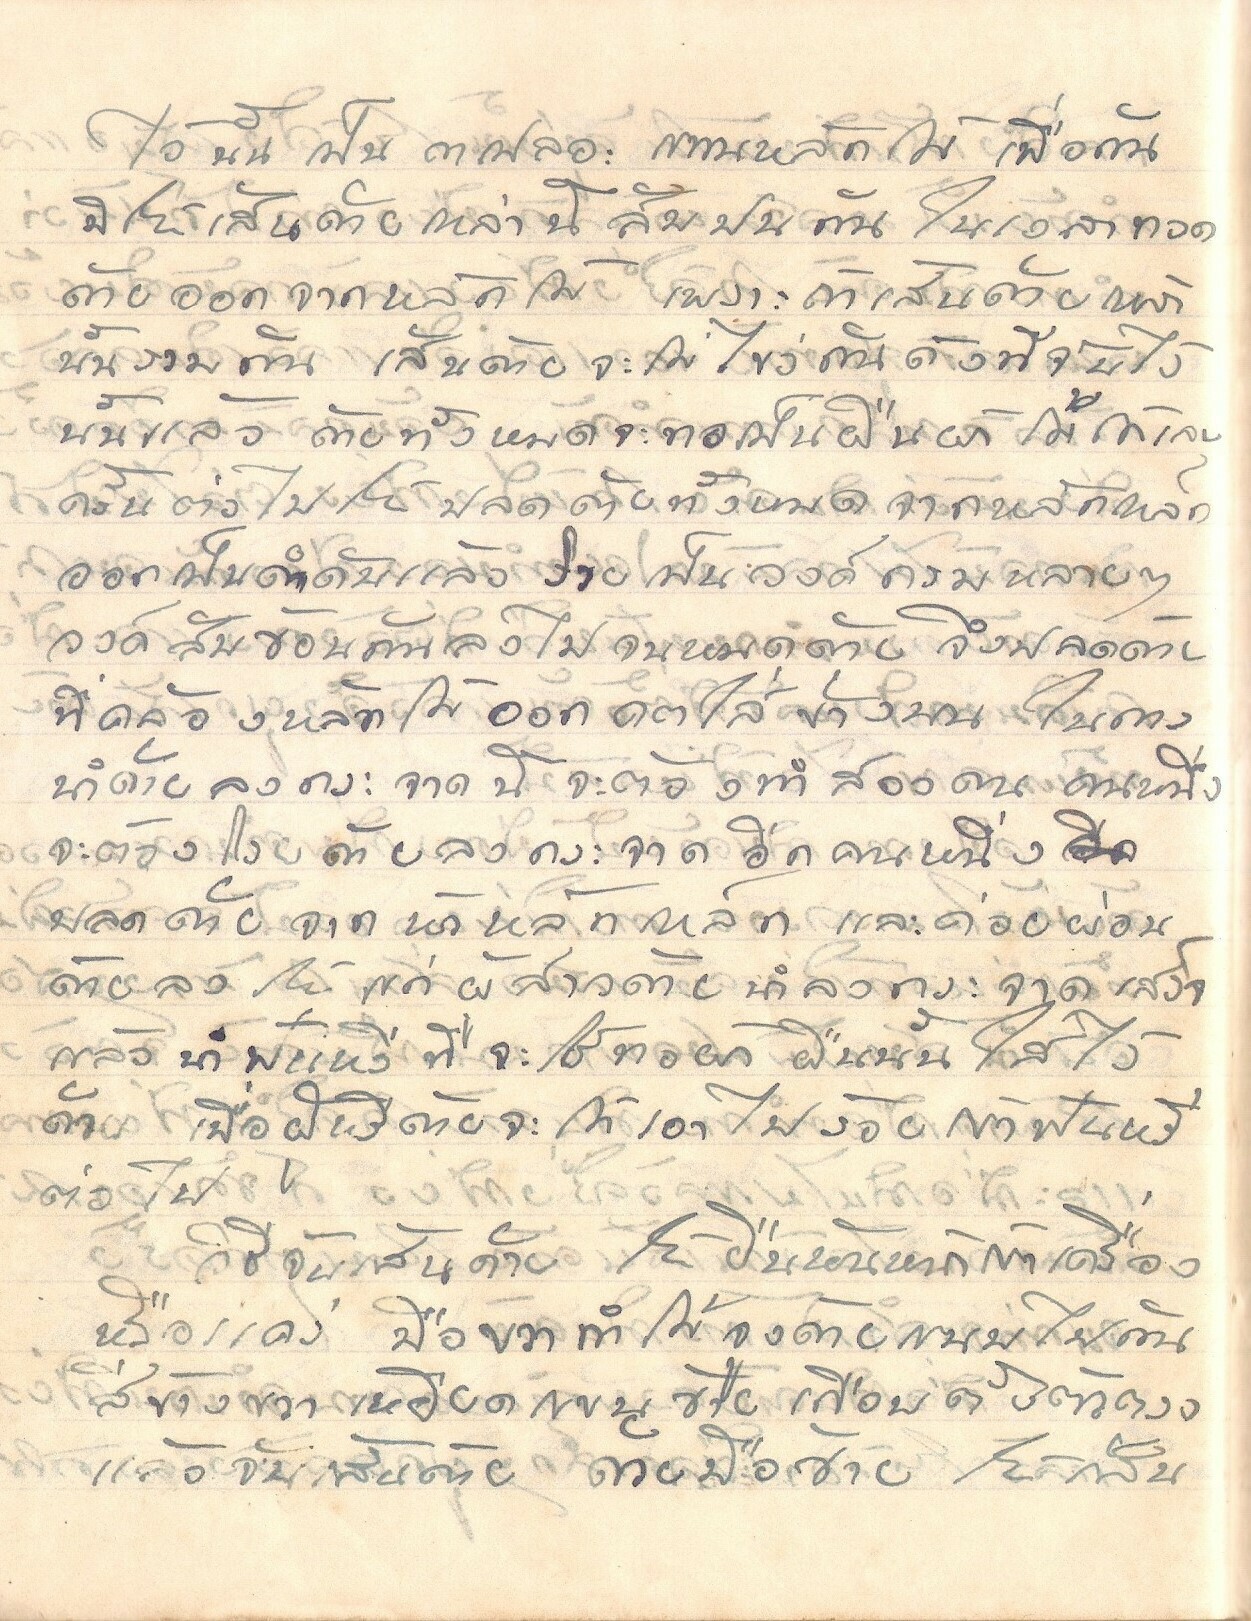 ไว้นั้น เป็น แทนหลักไม้ เพื่อกัน
มิให้เส้นด้ายเหล่านี้สับปนกัน ในเวลาถอด
ด้ายออกจากหลักไม้ เพราะถ้าเส้นด้ายเหล่า
นั้นรวมกัน เส้นด้ายจะไม่ไขว่กันดังที่จับไว้
นั้นแล้ว ด้ายทั้งหมดจะทอเป็นผืนผ้าไม่ได้เลย
ครั้นต่อไปให้ปลดด้ายทั้งหมดจากหลักหลัก
ออกเป็นลำดับแล้ว โรย เป็นวงค์กรมหลายๆ
วงค์ สับซ้อนกันลงไปจนหมดด้าย จึงปลดด้าย
ที่คล้องหลักไม้ออก ใส่ข้างบน ในการ
นำด้ายลงกระจาดนี้จะต้องทำสองคน คนหนึ่ง
จะต้องโรยด้ายลงกระจาด อีกคนหนึ่ง
ปลดด้ายจาก หลักหลัก และค่อยผ่อน
ด้ายลง ให้แก่ผู้สาวด้ายนำลงกระจาด เสร็จ
แล้วนำฟันหวีที่จะใช้ทอผ้าผืนนั้นใส่ไว้
ด้วย เพื่อผู้หวีด้ายจะได้เอาไปร้อยเข้าฟันหวี
ต่อไป
วิธีจับเส้นด้าย ให้ยืนหันหน้าเข้าเครื่อง
หรือแคร่ มือขวากำไม้จูงด้ายแนบไปกัน
สีข้างขวา เหยียดแขนซ้ายเกือบตั้งตัวตรง
แล้วจับเส้นด้าย ด้วยมือซ้าย ให้เส้น